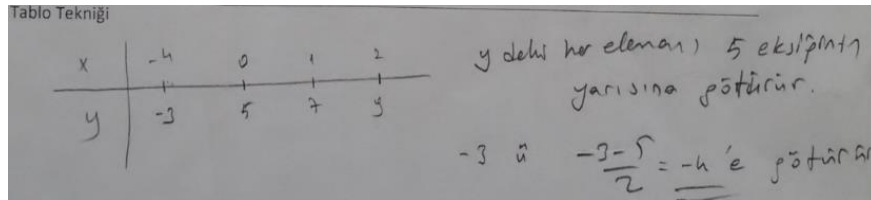 Tablo Tekniği
x -4 0 1 2
y -3 5 7 9
y deki her elemanı 5 eksiğinin
yarısına götürür.
-3 ü -3-5/2 = -4'e götürür